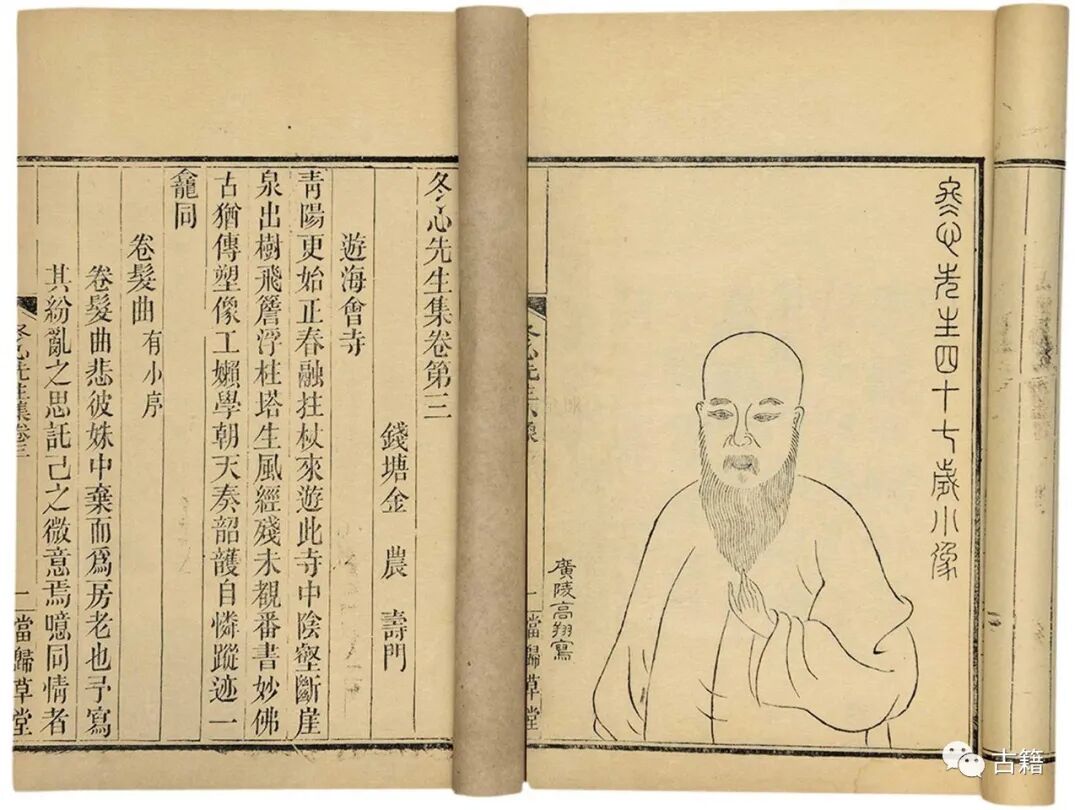 冬心先生四十七歲小像
廣陵高翔寫
冬心先生小像
一 當歸草堂
冬心先生集卷第三
錢塘金 農 壽門
遊海會寺
青陽更始正春融拄杖來遊此寺中陰壑斷崖
泉出樹飛簷浮柱塔生風經殘未覩番書妙佛
古猶傳塑像工嬾學朝天奏韶護自憐蹤迹一
龕同
卷髮曲 有小序
卷髮曲悲彼姝中棄而爲房老也予寫
其紛亂之思託己之微意焉噫同情者
冬心先生集卷三
一 當歸草堂
古籍